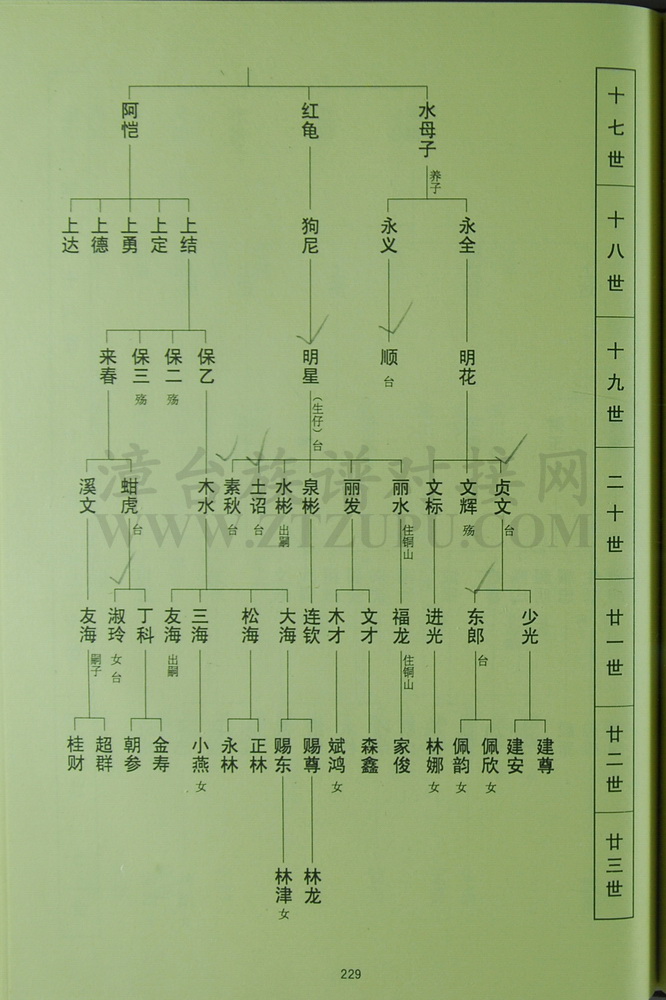 十七世
水母子 养子
红龟
阿恺
十八世
永全
永义
狗尼
上结
上定
上勇
上德
上达
十九世
明花
顺 台
明星 (生仔) 台
保乙
保二 殇
保三 殇
来春
二十世
贞文 台
文辉 殇
文标
丽水 住铜山
丽发
泉彬
水彬 出嗣
土诏 台
素秋 台
木水
蚶虎 台
溪文
廿一世
少光
东郎 台
进光
福龙 住铜山
文才
木才
连钦
大海
松海
三海
友海 出嗣
丁科
淑玲 女 台
友海 嗣子
廿二世
建尊
建安
佩欣 女
佩韵 女
林娜 女
家俊
森鑫
斌鸿 女
赐尊
赐东
正林
永林
小燕 女
金寿
朝参
超群
桂财
廿三世
林龙
林津 女
漳台族谱对接网
WWW.ZTZUPU.COM
229